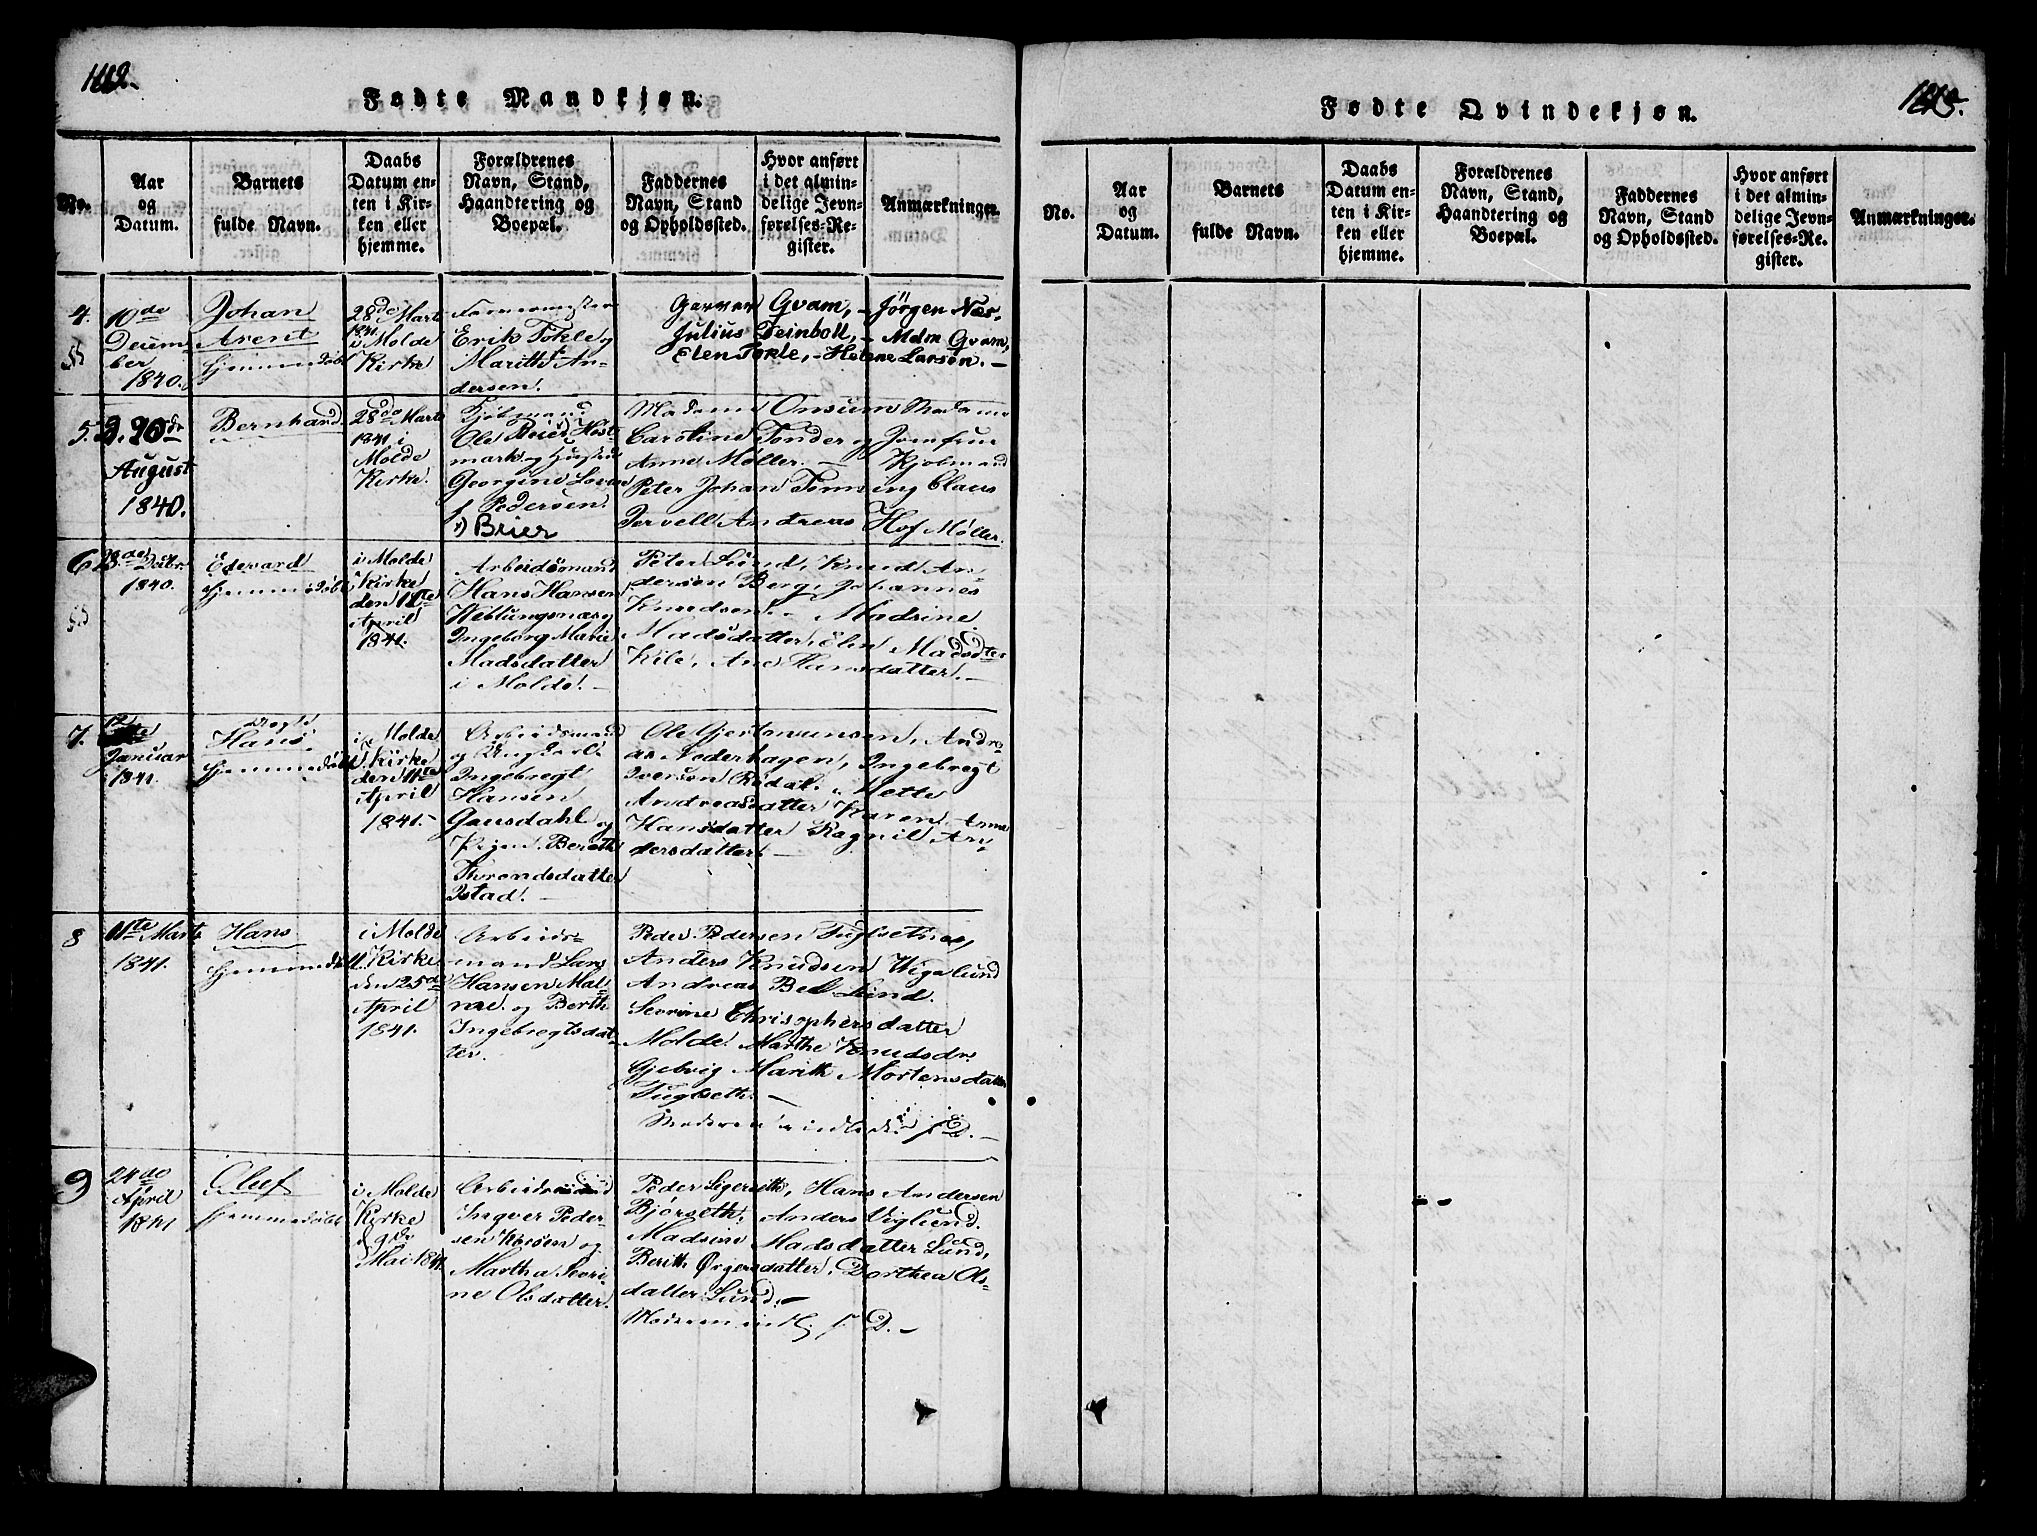 Fødte Mandkjøn.
No.
Aar
og
Datum.
Barnets
fulde Navn.
Daabs
Datum en-
ten i Kir-
ken eller
hjemme.
Forældrenes
Navn, Stand,
Haandtering og
Boepæl.
Faddernes
Navn, Stand
og Opholdssted.
Hvor anført
i det almin-
delige Jevn-
førelses-Re-
gister.
Anmærkninger.
4.
10de
Decem-
ber
1840.
Johan
Arent
hjemmedøbt
28de Marts
1841.
i Molde
Kirke
Erik Tokle og
Marith An-
dersen.
Gvam, - Jörgen Næs-
Julius Deinboll, - Mdm Gvam,
Elen Tokle, - Helene Larsen. -
5.
20de
August
1840.
Bernhard
28de Marts
1841 i
Molde
Kirke.
Kjøbmand
Ole Beier Høst-
mark og Hustrue
Georgine Lovise
f. Pedersen.
Brier
Madame Onsum Madame
Caroline Tonder og Jomfrue
Anne Møller. - Kjøbmand
Peter Johan Tønning Claus
Dervell Andreas Hof Møller.
6
28de Octbr
1840.
Edevard
hjemmedøbt
i Molde
Kirke
den 11te
April
1841.
Arbeidsmand
Hans Hansen
Veblungsnæs og
Ingeborg Marie
Madsdatter
i Molde. -
Peter Lund, Knud An-
dersen Berg, Johannes
Knudsen. - Madsine
Madsdatter, Elen Madsdter
Kile, Ane Hansdatter. -
7.
12
Januar
1841.
Hans
hjemmedøbt
i Molde
Kirke
den 11te
April
1841. -
Arbeidsmand
og Ungkarl
Ingebregt
Hansen
Gausdahl og
Pigen Bereth
Throndsdatter
Istad. -
Ole Gjertmunsen, Andre-
as Nederhagen, Ingebregt
Iversen Rødal. Mette
Andreasdatter Karen Anna
Hansdatter Ragnil An-
dersdatter. -
8
11te Marts
1841.
Hans
hjemmedøbt
i Molde
Kirke
den 25de
April
1841.
Arbeids-
mand Lars
Hansen Mal-
me og Berthe
Ingebregtsdat-
ter.
Peder Pedersen Fuglsethøe,
Anders Knudsen Wigelund
Andreas Lund.
Sevrine Chrisophersdatter
Molde. Marthe Knudsdr
Gjelvig Marith Mortensdatter
Fuglseth. -
Moderen indledt s. D. -
9
24de
April
1841
Oluf
hjemmedøbt
i Molde
Kirke
9de
Mai 1841
Arbeidsmand
Ingver Peder-
sen og
Martha Sevri-
ne Olsdatter.
Peder Ligerseth, Hans Andersen
Bjørseth, Anders Viglund.
Madsine Madsdatter Lund,
Berith Ørgensdatter, Dorthea Ols-
datter Lund. -
Moderen indl. s. D. -
Fødte Qvindekjøn.
No.
Aar
og
Datum.
Barnets
fulde Navn.
Daabs
Datum en-
ten i Kir-
ken eller
hjemme.
Forældrenes
Navn, Stand,
Haandtering og
Boepæl.
Faddernes
Navn, Stand
og Opholdssted.
Hvor anført
i det almin-
delige Jevn-
førelses-Re-
gister.
Anmærkninger.